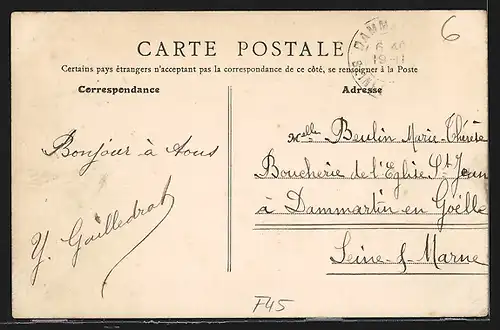 6
CARTE POSTALE
Certains pays étrangers n'acceptant pas la correspondance de ce côté, se renseigner à la Poste
Correspondance
Bonjour à tous
Y. Gailledrat
Adresse
Melle Beulin Marie-Thérèse
Boucherie de l'Eglise St Jean
à Dammartin en Goëlle
Seine-&-Marne
F45